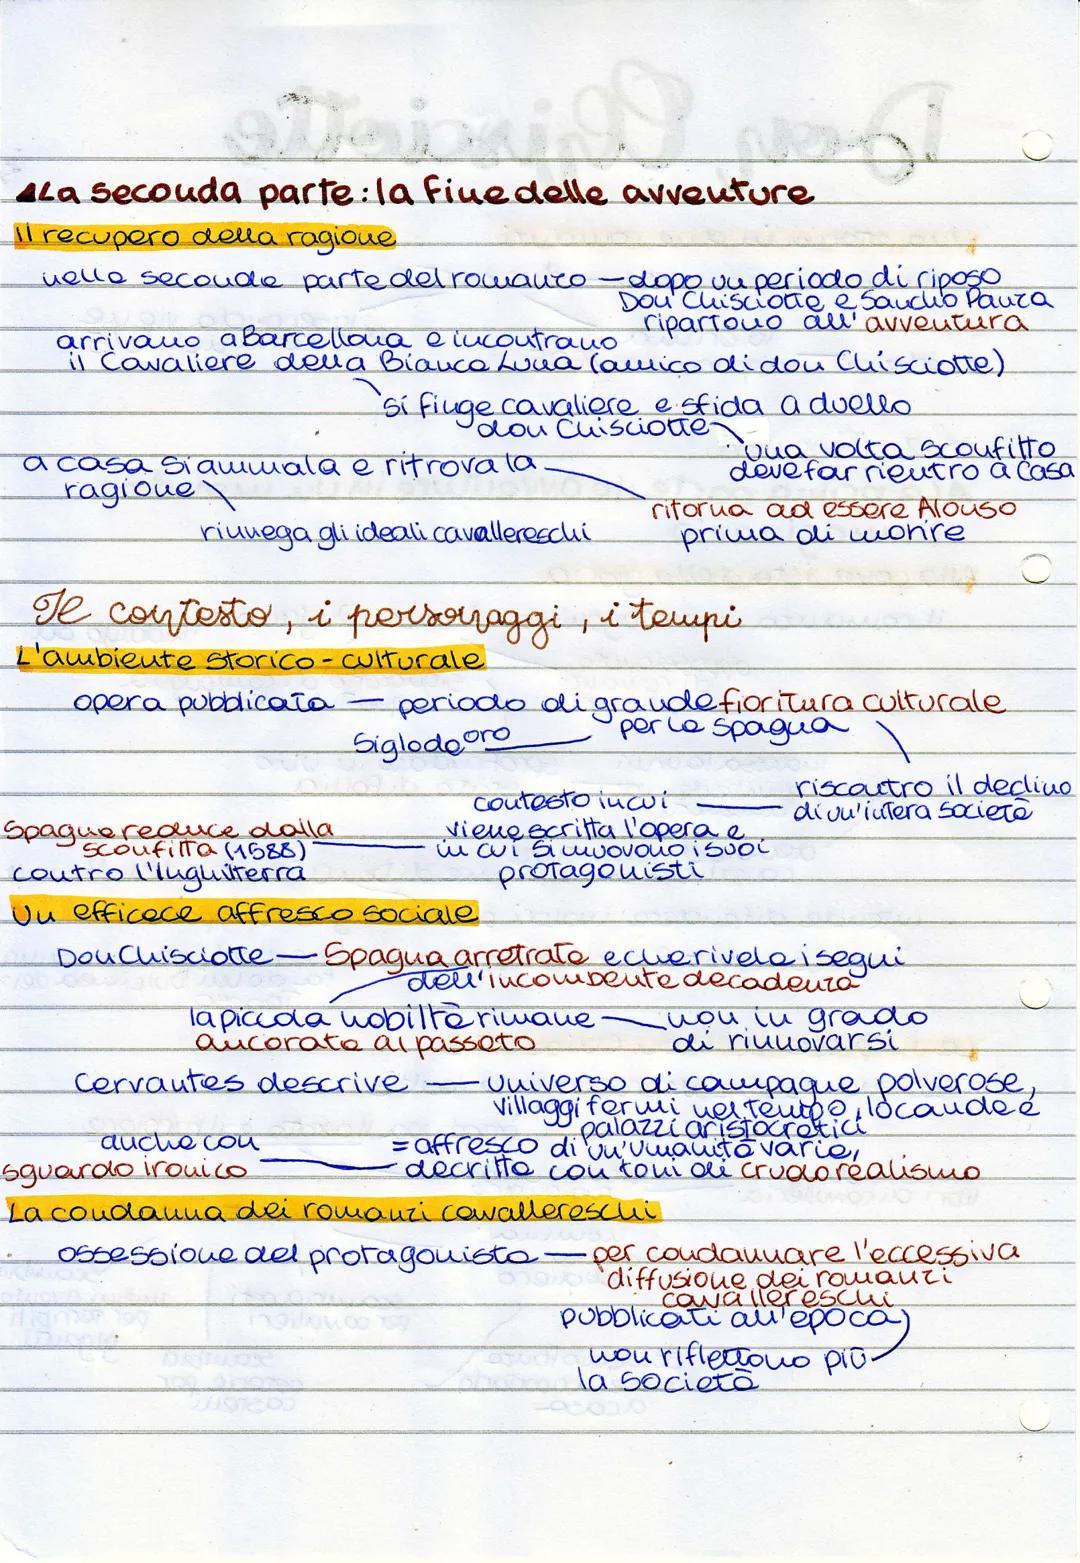 La seconda parte: la fine delle avventure
Il recupero della ragione
nella seconda parte del romanzo — dopo un periodo di riposo
Don Chisciotte e Sancho Panza
ripartono all'avventura
arrivano a Barcellona e incontrano
il Cavaliere della Bianca Luna (amico di don Chisciotte)
si finge cavaliere e sfida a duello
don Chisciotte
una volta sconfitto
deve far rientro a casa
a casa si ammala e ritrova la
ragione
ritorna ad essere Alonso
prima di morire
rinnega gli ideali cavallereschi
Il contesto, i personaggi, i tempi
L'ambiente storico-culturale
opera pubblicata — periodo di grande fioritura culturale
per la Spagna
Siglo de oro
riscontro il declino
di un'intera società
contesto in cui
viene scritta l'opera e
in cui si muovono i suoi
protagonisti
Spagna reduce dalla
sconfitta (1588)
contro l'Inghilterra
Un efficace affresco sociale
Don Chisciotte — Spagna arretrata e che rivela i segni
dell'incombente decadenza
la piccola nobiltà rimane
ancorata al passato
non in grado
di rinnovarsi
Cervantes descrive — universo di campagne polverose,
villaggi fermi nel tempo, locande e
palazzi aristocratici
= affresco di un'umanità varia,
decritta con toni di crudo realismo
anche con
sguardo ironico
La condanna dei romanzi cavallereschi
ossessione del protagonista — per condannare l'eccessiva
diffusione dei romanzi
cavallereschi
pubblicati all'epoca
non riflettono più
la società